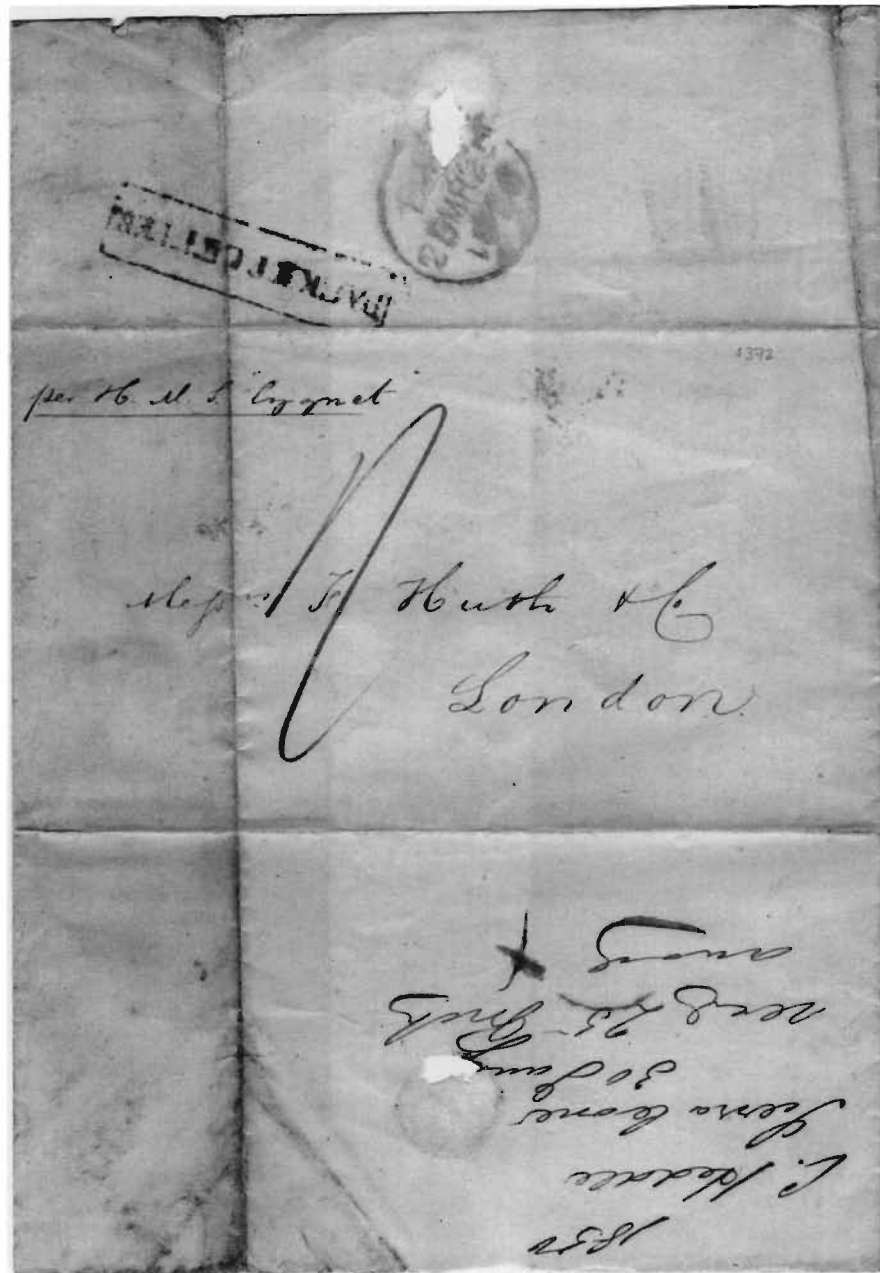 PACKET LETTER
1850
4372
per H. M. S. "Cygnet"
Messrs F Huth & Co
London
1850
C. Heddle
Sierra Leone
30 Jany
recd 25 Mch